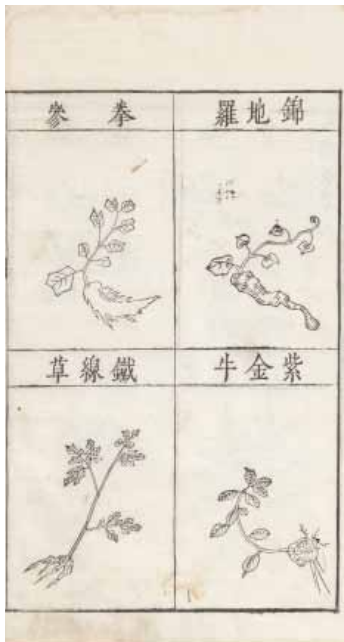 錦地羅
拳參
紫金牛
鐵線草